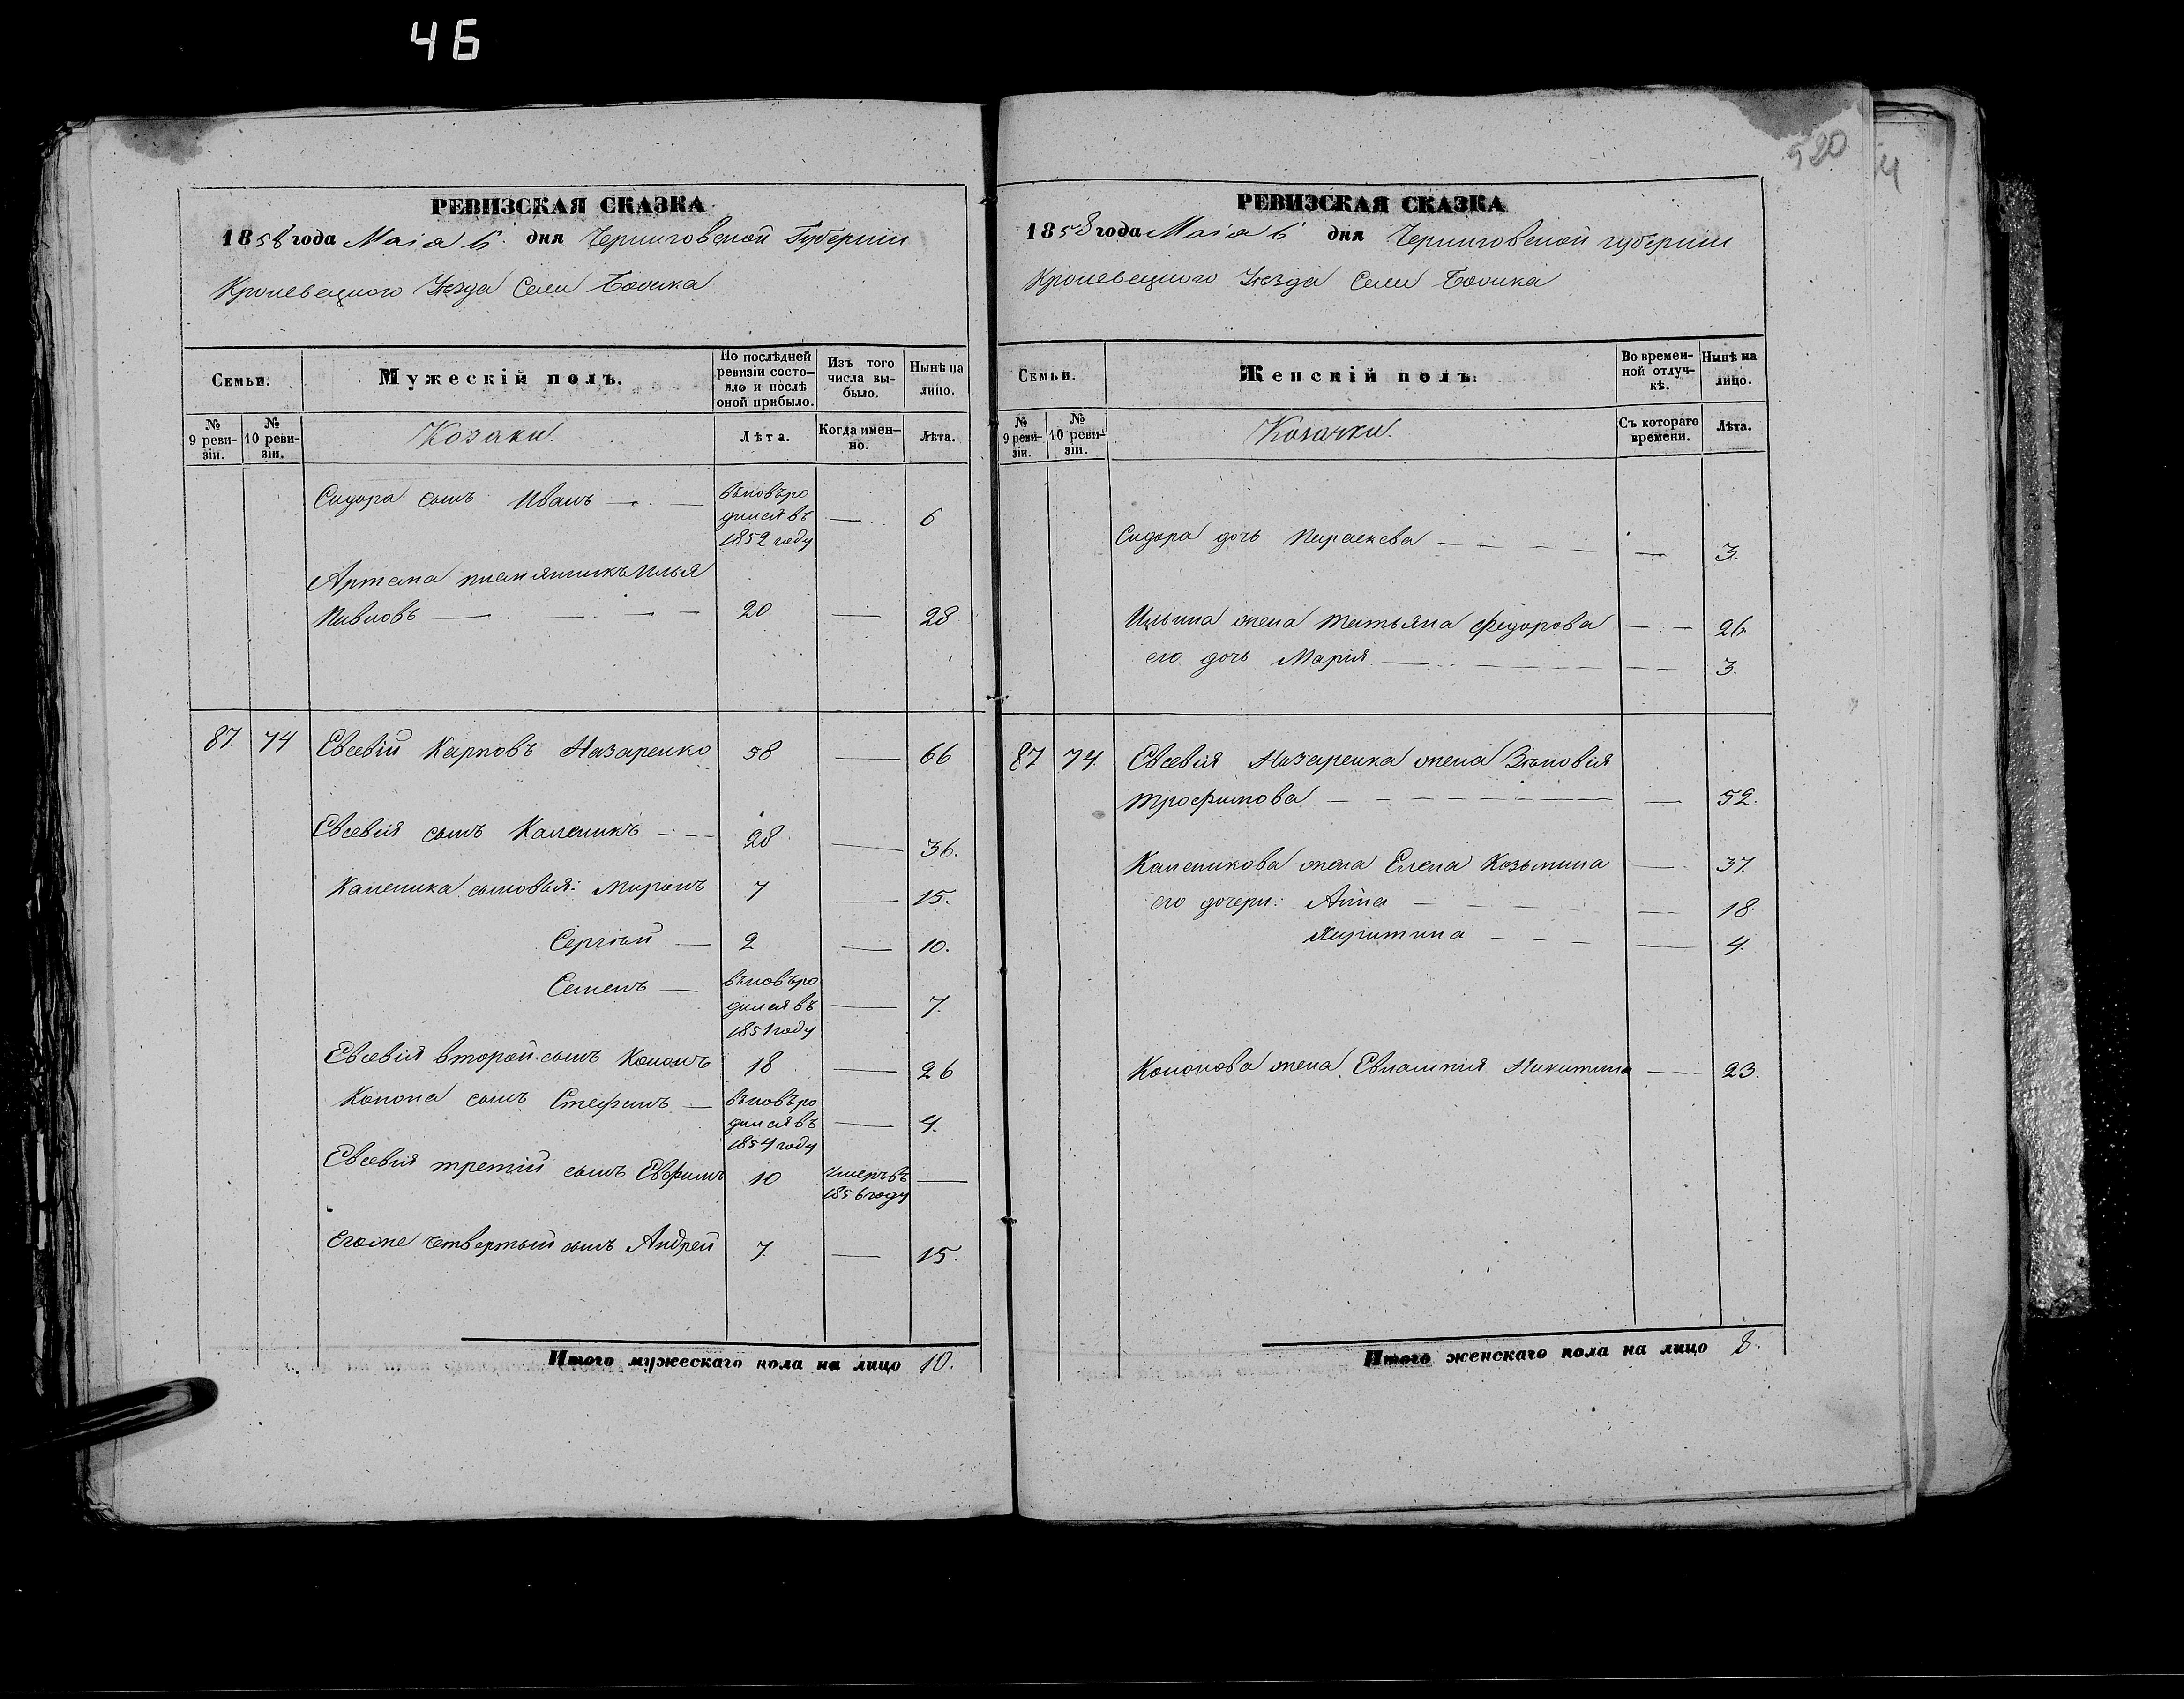 46
520
РЕВИЗСКАЯ СКАЗКА
1858 года Маія 6 дня Черниговской Губерніи
Кролевецкого Уезда Села
Семьи.
Мужескій полъ.
По послѣдней ревизіи состо-
яло и послѣ оной прибыло.
Изъ того числа вы-
было.
Нынѣ на лицо.
№ 9 реви-
зіи.
№ 10 реви-
зіи.
Козаки.
Лѣта.
Когда имен-
но.
Лѣта.
Сидора сынъ Иванъ — — вьновъро
дился въ — 6
1852 году
Артема племянникъ Илья
Павловъ — — — — 20 — 28
87. 74 Евсевій Карповъ Назаренко 58 — 66
Евсевія сынъ Каленикъ — — 28 — 36.
Каленика сыновья: Миронъ 7 — 15.
Сергѣй — 2 — 10.
Семенъ — вьновъро
дился въ — 7.
1851 году
Евсевія второй сынъ Кононъ 18 — 26
Конона сынъ Стефанъ — вьновъро
дился въ — 4.
1854 году
Евсевія третій сынъ Евфимъ 10 умеръ въ —
1856 году
Егоже четвертый сынъ Андрей 7. — 15.
Итого мужескаго пола на лицо 10.
РЕВИЗСКАЯ СКАЗКА
1858 года Маія 6 дня Черниговской губерніи
Кролевецкого Уезда Села
Семьи.
Женскій полъ.
Во времен-
ной отлуч-
кѣ.
Нынѣ на лицо.
№ 9 реви-
зіи.
№ 10 реви-
зіи.
Козачки.
Съ котораго времени.
Лѣта.
Сидора дочь Параскева — — — — — 3.
Ильина жена Татьяна Федорова — — 26
его дочь Марія — — — — — — 3.
87 74. Евсевія Назаренка жена Зѣновія
Трофимова — — — — — — — 52.
Каленикова жена Елена Козьмина — 37.
его дочери: Анна — — — — — 18.
Харитина — — — — 4.
Кононова жена Евлампія Никитина — — 23.
Итого женскаго пола на лицо 8.